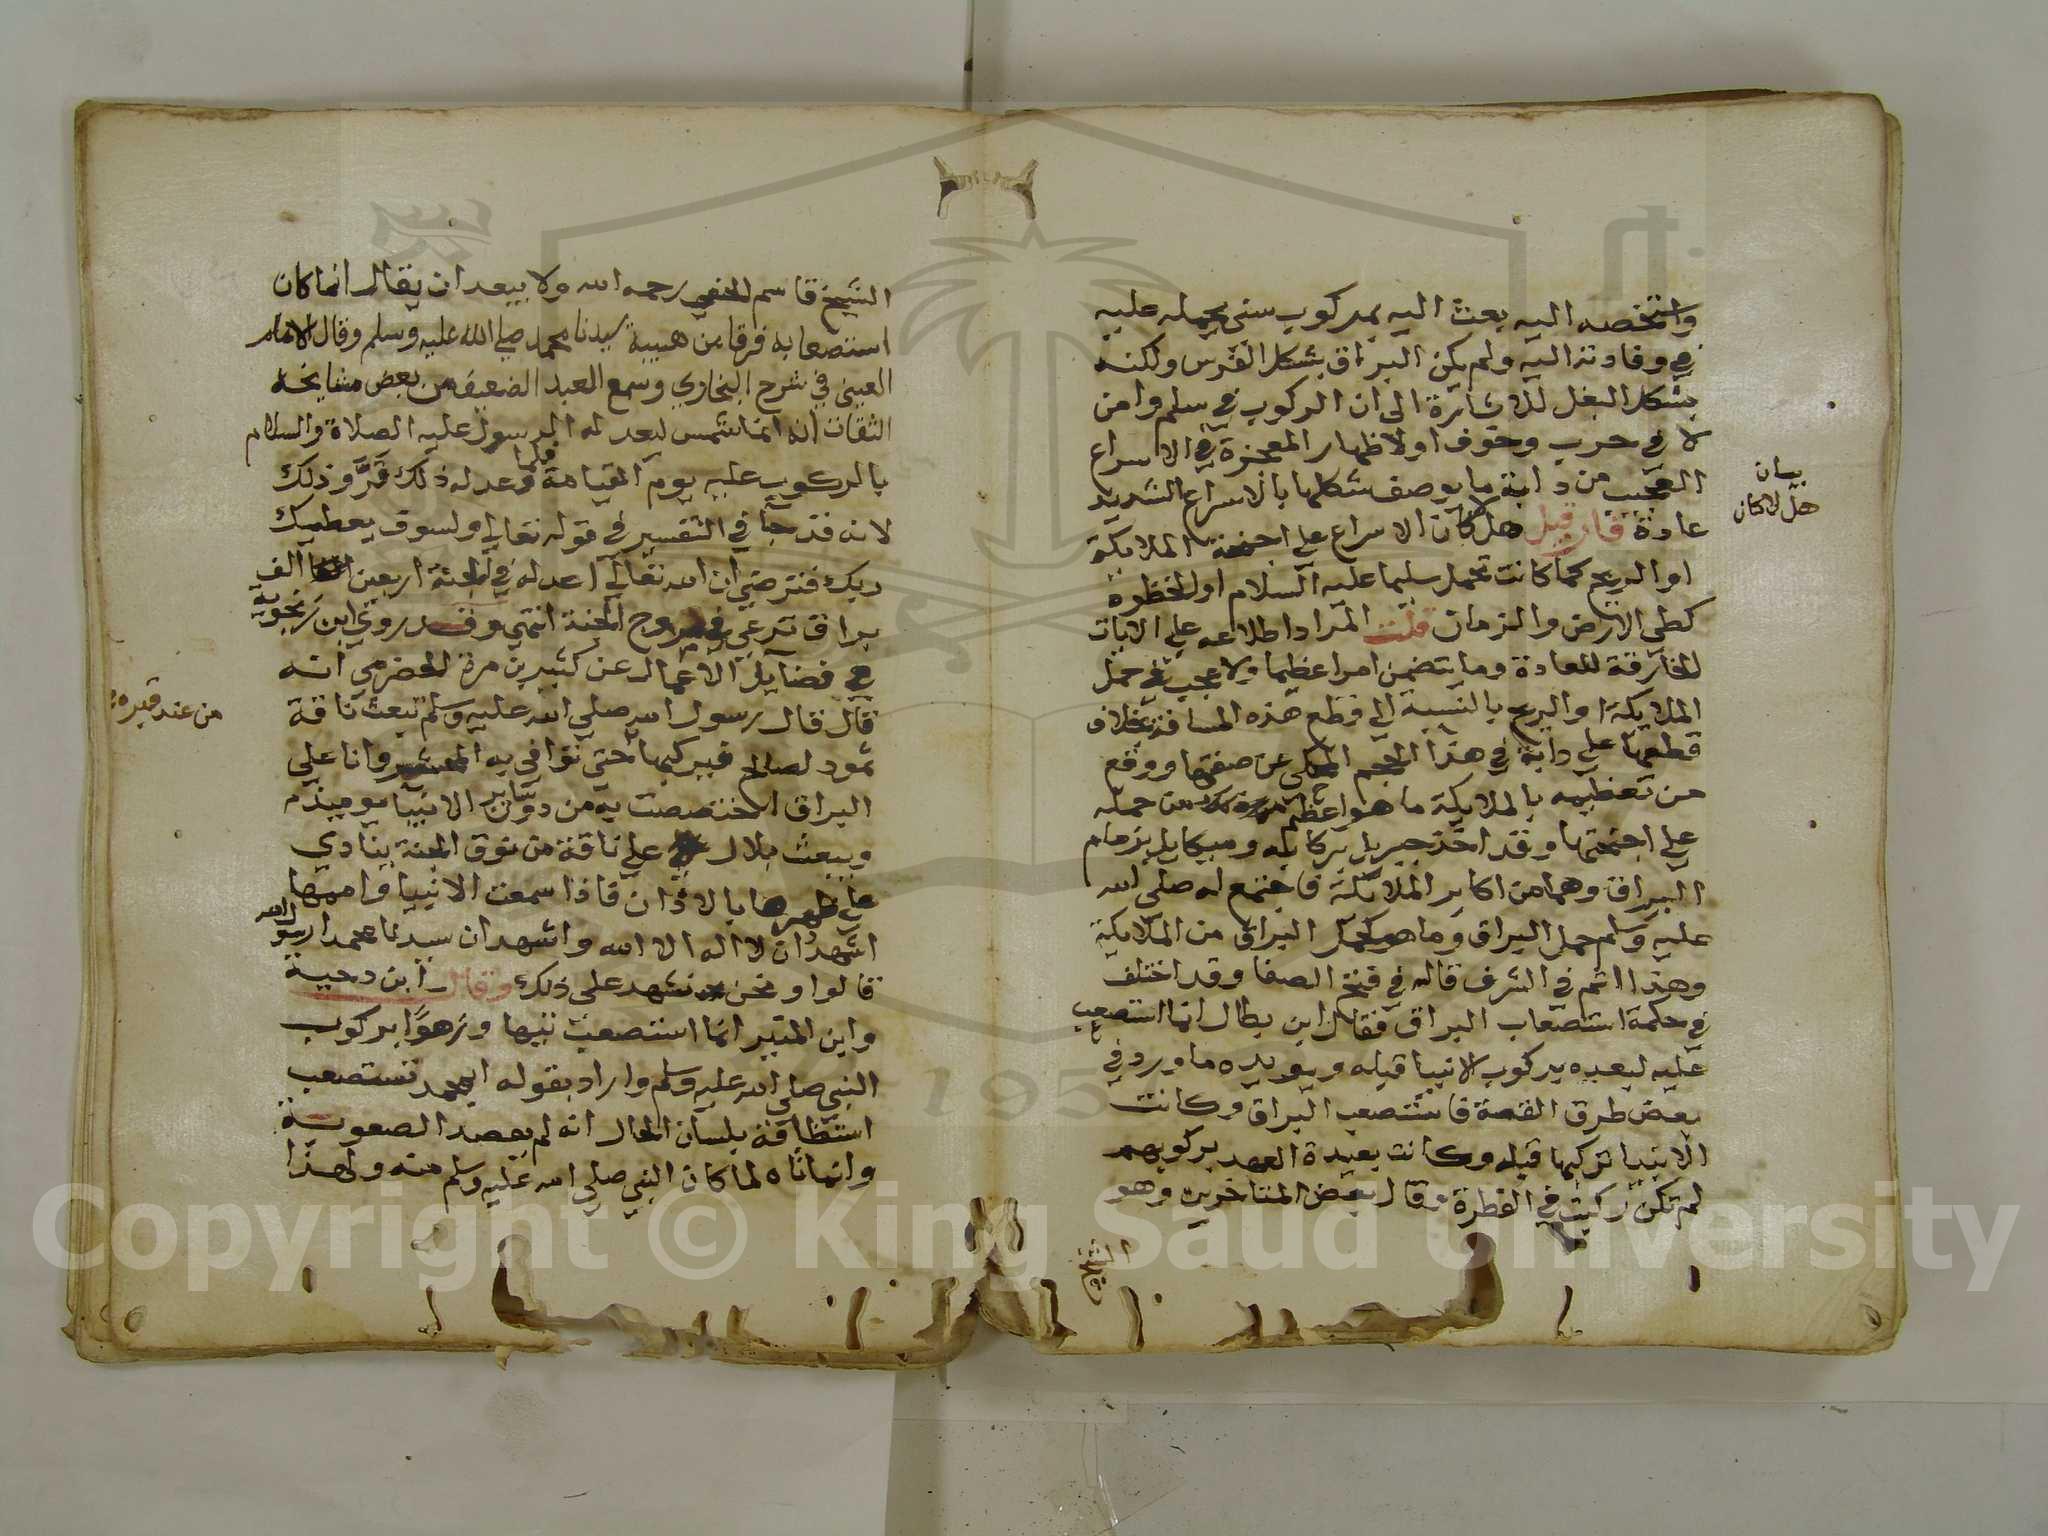 واستخصه اليه بعث اليه بمركوب سني يحمله عليه
في وفادته اليه ولم يكن البراق بشكل الفرس ولكنه
بشكل البغل للاشارة الى ان الركوب في سلم وامن
لا في حرب وخوف او لاظهار المعجزة في الاسراع
العجيب من دابة ما يوصف شكلها بالاسراع الشديد
عادة فان قيل هلا كان الاسراع على اجنحة الملايكة
او الريح كما كانت تحمل سليما عليه السلام او الخطوة
كطي الارض والزمان قلت المراد اطلاعه على الايات
الخارقة للعادة وما يتضمن امرا عظيما ولا عجب في حمل
الملايكة او الريح بالنسبة الى قطع هذه المسافة بخلاف
قطعها على دابة في هذا الحجم المحكي عن صفتها ووقع
من تعظيمه بالملايكة ما هو اعظم من حمله
على اجنحتها وقد اخذ جبريل بركابه وميكايل بزمام
البراق وهما من اكابر الملايكة فاجتمع له صلى الله
عليه وسلم حمل البراق وما هو كحمل البراق من الملايكة
وهذا اتم في الشرف قاله في فتح الصفا وقد اختلف
في حكمة استصعاب البراق فقال ابن بطال انما استصعب
عليه لبعده بركوب الانبيا قبله ويويده ما ورد في
بعض طرق القصة فاستصعب البراق وكانت
الانبيا تركبها قبله وكانت بعيدة العهد بركوبهم
لم تكن ركبت في الفطرة وقال بعض المتاخرين وهو
الشيخ
بيان
هل لا كان
الشيخ قاسم الحنفي رحمه الله ولا يبعد ان يقال انما كان
استصعابه فرقا من هيبة سيدنا محمد صلى الله عليه وسلم وقال الامام
العيني في شرح البخاري وسمع العبد الضعيف من بعض مشايخه
الثقات انه انما شمس ليعد له الرسول عليه الصلاة والسلام
بالركوب عليه يوم القيامة فلما وعد له ذلك قر وذلك
لانه قد جآ في التفسير في قوله تعالى ولسوف يعطيك
ربك فترضى ان الله تعالى اعد له في الجنة اربعين الف
براق ترعى في مروج الجنة انتهى وقد روى ابن زنجوية
في فضايل الاعمال عن كثير بن مرة الحضرمي انه
قال قال رسول الله صلى الله عليه وسلم تبعث ناقة
ثمود لصالح فيركبها حتى توافى به المحشر وانا على
البراق اختصصت به من دون ساير الانبيا يوميذ
ويبعث بلال على ناقة من نوق الجنة ينادي
على ظهرها بالاذان فاذا سمعت الانبيا واممها
اشهد ان لا اله الا الله واشهد ان سيدنا محمدا رسول الله
قالوا ونحن نشهد على ذلك وقال ابن دحية
وابن المنير انما استصعبت تيها وزهوا بركوب
النبي صلى الله عليه وسلم واراد بقوله ابمحمد تستصعب
استنطاقه بلسان الحال انه لم يقصد الصعوبة
وانما تاه لمكان النبي صلى الله عليه وسلم منه ولهذا
من عند قبره